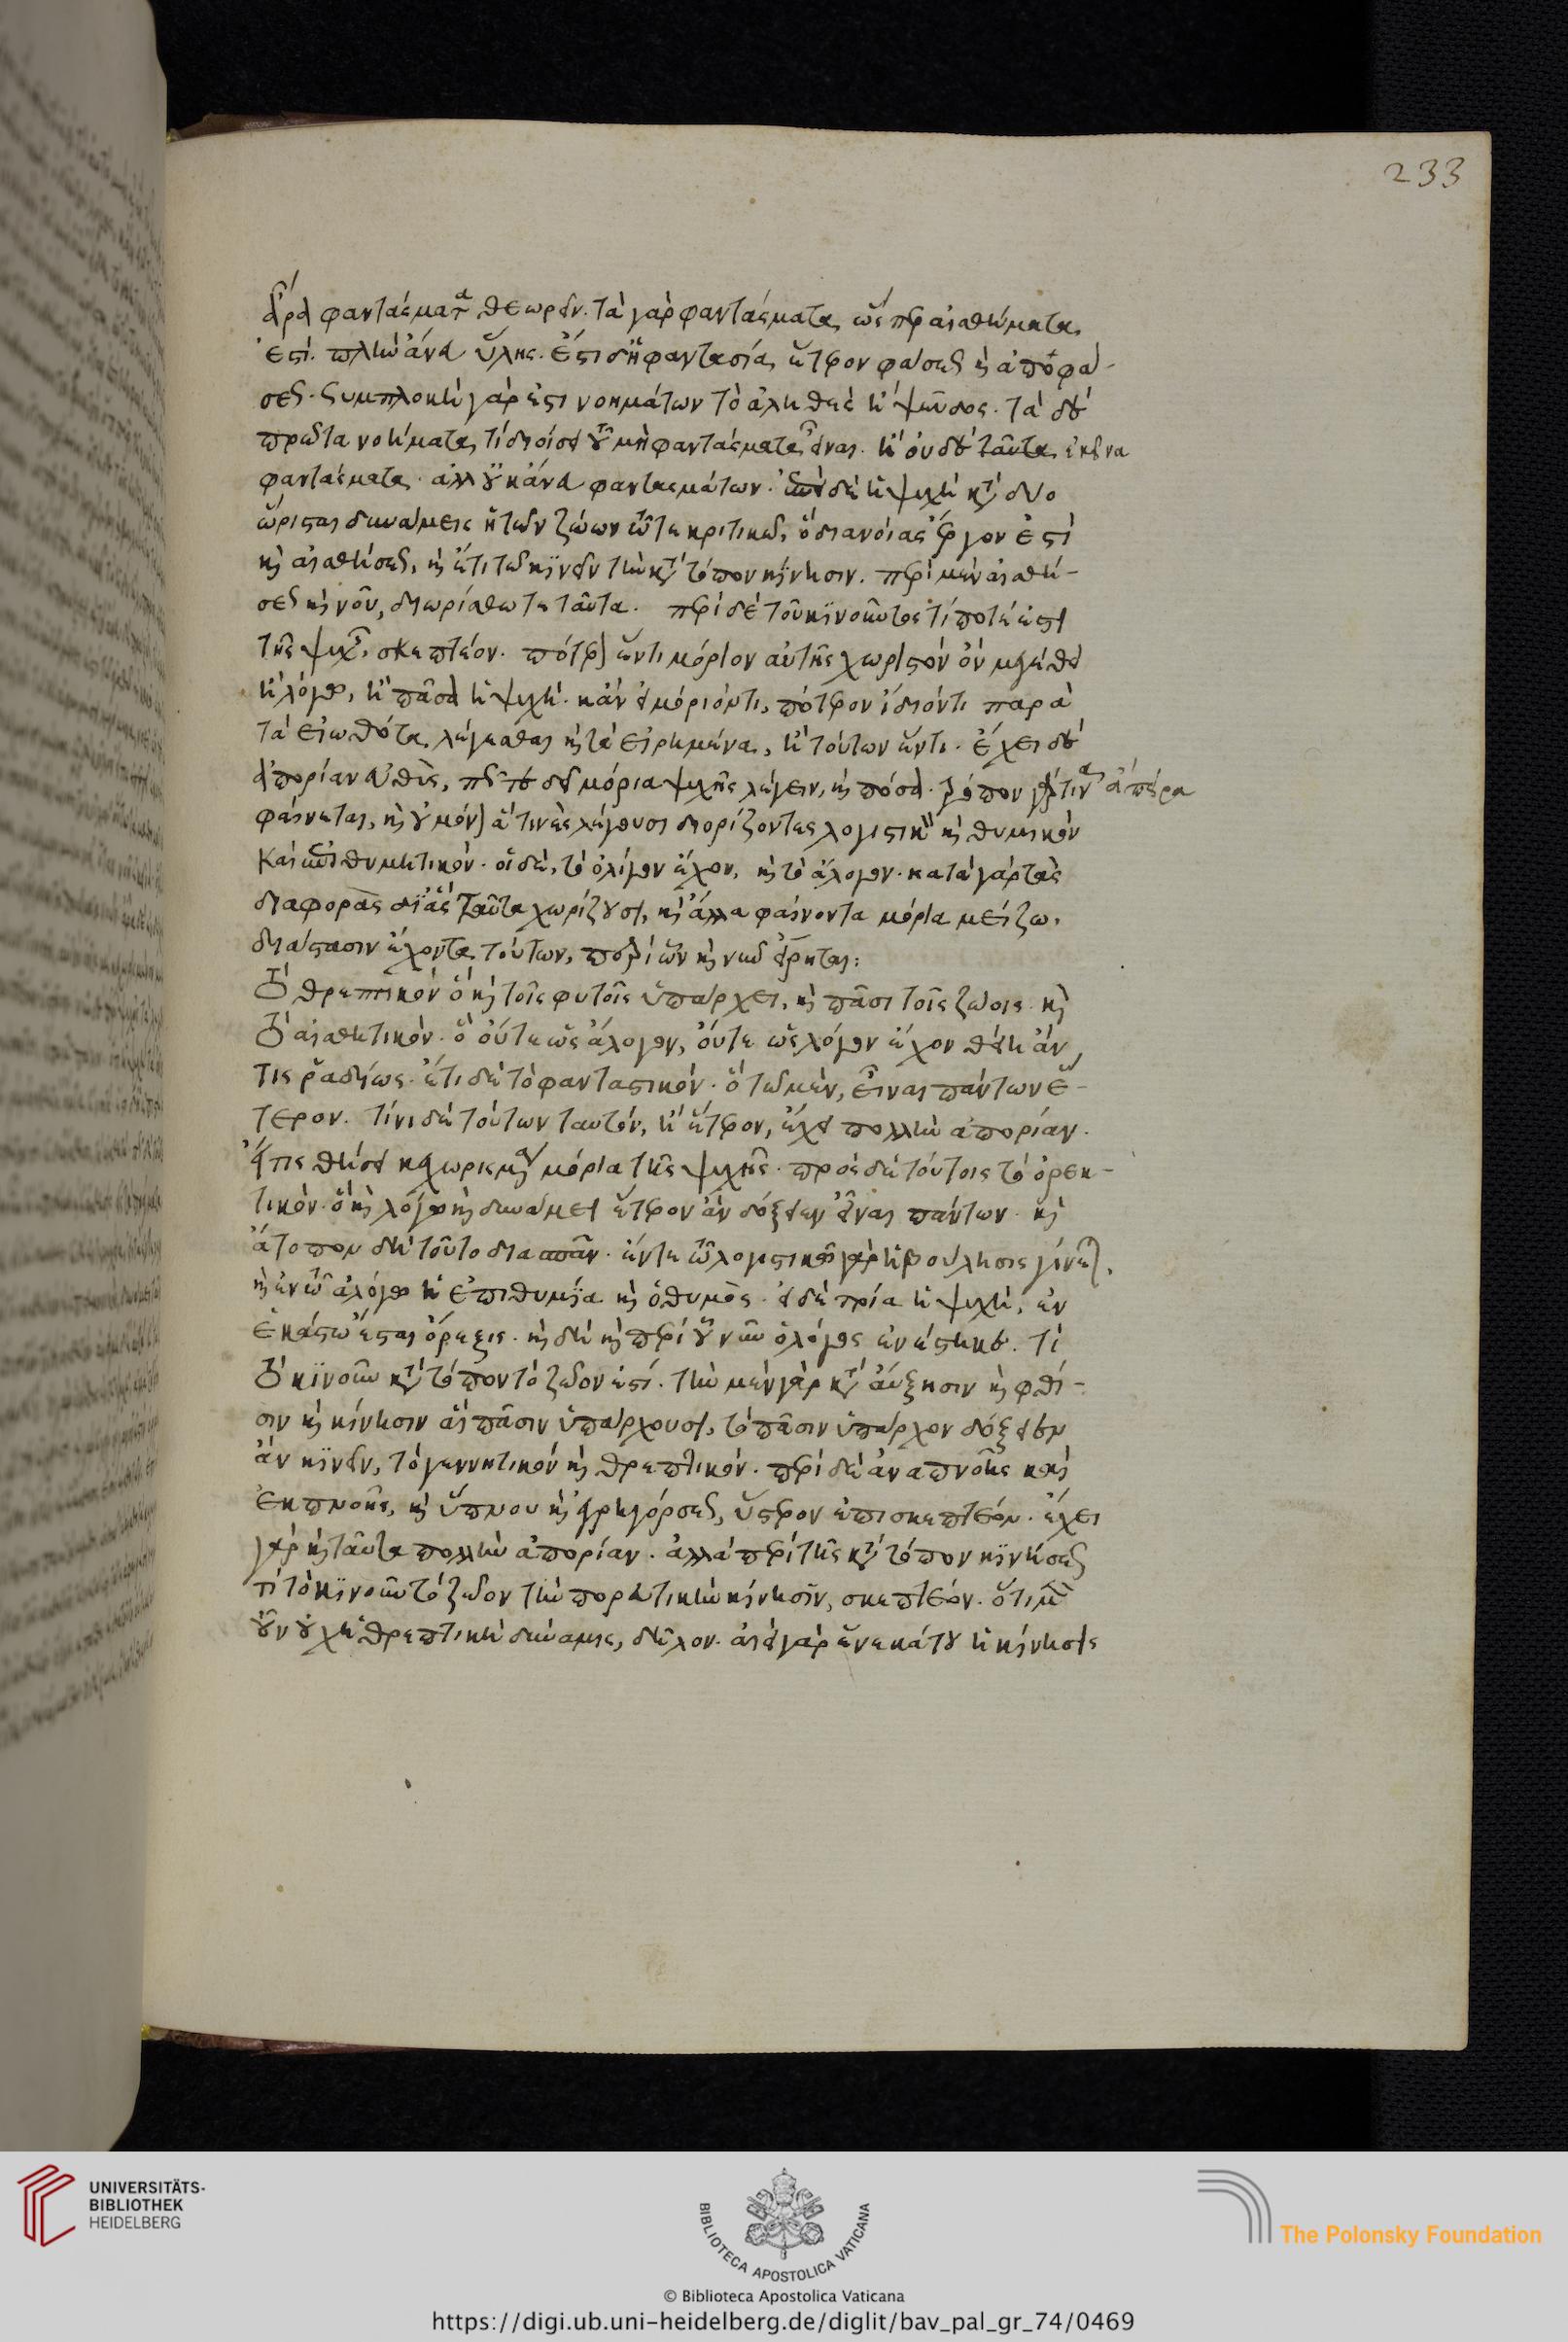 233
ἅμα φαντάσματα θεωρεῖν. τὰ γὰρ φαντάσματα, ὥσπερ αἰσθήματα
ἐστί. πλὴν ἄνευ ὕλης. ἔστι δ' ἡ φαντασία, ἕτερον φάσεως καὶ ἀποφά-
σεως. συμπλοκὴ γάρ ἐστι νοημάτων τὸ ἀληθὲς ἢ ψεῦδος. τὰ δὲ
πρῶτα νοήματα, τί διοίσει τοῦ μὴ φαντάσματα εἶναι. ἢ οὐδὲ ταῦτα ἐκεῖνα
φαντάσματα. ἀλλ' οὐκ ἄνευ φαντασμάτων. ἐπεὶ δὲ ἡ ψυχὴ κατὰ δύο
ὥρισται δυνάμεις ἡ τῶν ζώων τῶ τε κριτικῶ, ὃ διανοίας ἔργον ἐστὶ
καὶ αἰσθήσεως, καὶ ἔτι τῶ κινεῖν τὴν κατὰ τόπον κίνησιν. περὶ μὲν αἰσθή-
σεως καὶ νοῦ, διωρίσθω τε ταῦτα. περὶ δὲ τοῦ κινοῦντος τί ποτέ ἐστι
τῆς ψυχῆς, σκεπτέον. πότερον ἕν τι μόριον αὐτῆς χωριστὸν ὂν μεγέθει
ἢ λόγω, ἢ πᾶσα ἡ ψυχή. κἂν εἰ μόριόν τι, πότερον ἴδιόν τι παρὰ
τὰ εἰωθότα λέγεσθαι καὶ τὰ εἰρημένα, ἢ τούτων ἕν τι. ἔχει δὲ
ἀπορίαν εὐθὺς, πῶς τε δεῖ μόρια ψυχῆς λέγειν, καὶ πόσα. τρόπον γάρ τινα ἄπειρα
φαίνεται, καὶ οὐ μόνον ἅ τινες λέγουσι διορίζοντες λογιστικὸν καὶ θυμικὸν
καὶ ἐπιθυμητικόν. οἱ δὲ, τὸ λόγον ἔχον, καὶ τὸ ἄλογον. κατὰ γὰρ τὰς
διαφορὰς δι' ἃς ταῦτα χωρίζουσι, καὶ ἄλλα φαίνονται μόρια μείζω
διάστασιν ἔχοντα τούτων, περὶ ὧν καὶ νῦν εἴρηται:
τὸ θρεπτικόν ὃ καὶ τοῖς φυτοῖς ὑπάρχει, καὶ πᾶσι τοῖς ζώοις. καὶ
τὸ αἰσθητικὸν. ὃ οὔτε ὡς ἄλογον, οὔτε ὡς λόγον ἔχον θείη ἄν
τις ῥαδίως. ἔτι δὲ τὸ φανταστικόν. ὃ τῶ μὲν, εἶναι πάντων ἕ-
τερον. τίνι δὲ τούτων ταυτόν, ἢ ἕτερον, ἔχει πολλὴν ἀπορίαν.
εἴ τις θήσει κεχωρισμένα μόρια τῆς ψυχῆς. πρὸς δὲ τούτοις τὸ ὀρεκ-
τικόν. ὃ καὶ λόγω καὶ δυνάμει ἕτερον ἂν δόξειεν εἶναι πάντων. καὶ
ἄτοπον δὴ τοῦτο διασπᾶν. ἔν τε τῶ λογιστικῶ γὰρ ἡ βούλησις γίνεται,
καὶ ἐν τῶ ἀλόγω ἡ ἐπιθυμία καὶ ὁ θυμὸς. εἰ δὲ τρία ἡ ψυχή, ἐν
ἑκάστω ἔσται ὄρεξις. καὶ δὴ καὶ περὶ οὗ νῦν ὁ λόγος ἐνέστηκε. τί
τὸ κινοῦν κατὰ τόπον τὸ ζῶον ἐστί. τὴν μὲν γὰρ κατ' αὔξησιν καὶ φθί-
σιν καὶ κίνησιν αἳ πᾶσιν ὑπάρχουσι, τὸ πᾶσιν ὑπάρχον δόξειεν
ἂν κινεῖν, τὸ γεννητικόν καὶ θρεπτικόν. περὶ δὲ ἀναπνοῆς καὶ
ἐκπνοῆς, καὶ ὕπνου καὶ ἐγρηγόρσεως, ὕστερον ἐπισκεπτέον. ἔχει
γὰρ καὶ ταῦτα πολλὴν ἀπορίαν. ἀλλὰ περὶ τῆς κατὰ τόπον κινήσεως
τί τὸ κινοῦν τὸ ζῶον τὴν πορευτικὴν κίνησιν, σκεπτέον. ὅτι μὲν
οὖν οὐχ ἡ θρεπτικὴ δύναμις, δῆλον. ἀεὶ γὰρ ἕνεκά του ἡ κίνησις
UNIVERSITÄTS-
BIBLIOTHEK
HEIDELBERG
BIBLIOTECA APOSTOLICA VATICANA
The Polonsky Foundation
© Biblioteca Apostolica Vaticana
https://digi.ub.uni-heidelberg.de/diglit/bav_pal_gr_74/0469